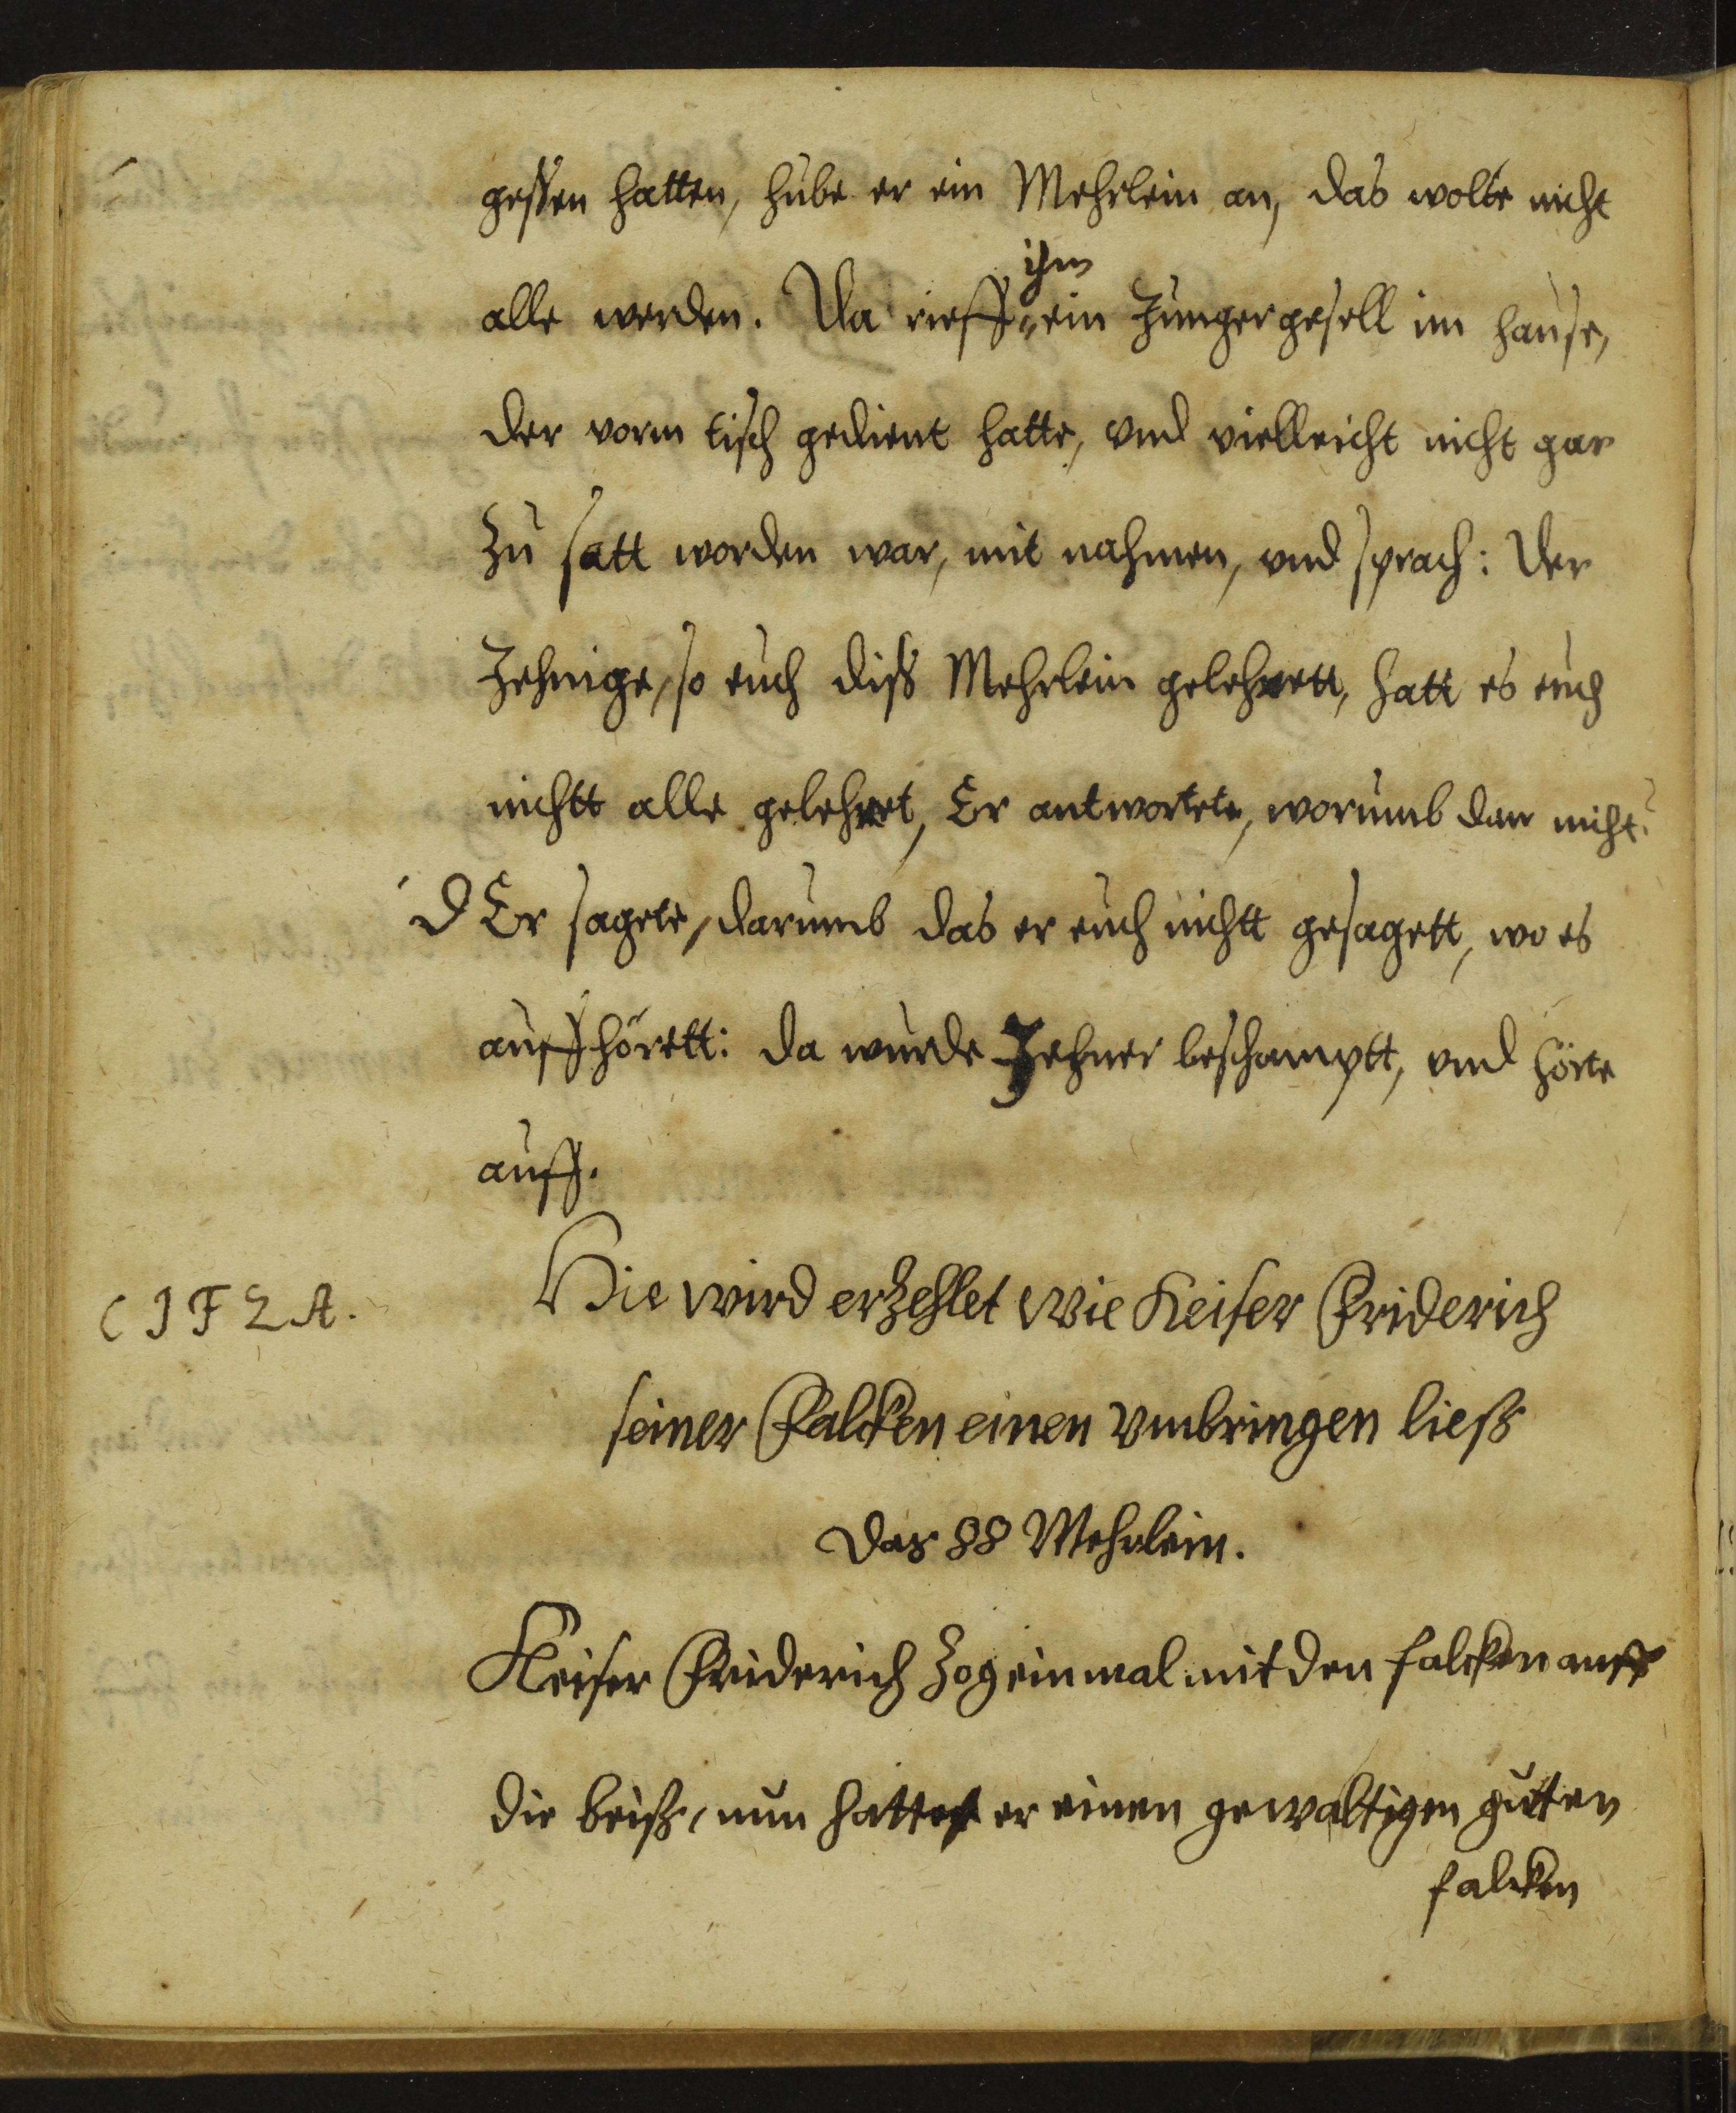 gessen hatten, hube er ein Mehrlein an, das wolte nicht
ihm
alle werden. Da rieff ein Jungergesell im hause,
der vorm tisch gedient hatte, vnd vielleicht nicht gar
zu satt worden war, mit nahmen, vnd sprach: Der
Jehnige, so euch diss Mehrlein gelehrett, hatt es euch
nichtt alle gelehret, Er antwortete, worumb dan nicht?
D Er sagete, darumb das er euch nichtt gesagett, wo es
auffhörett: da wurde Jehner beschamptt, vnd hörte
auff.
C I F Z A.
Hie wird erzehlet wie Keiser Friderich
seiner Falcken einen vmbringen ließ
Das 88 Mehrlein.
Keiser Friderich zog einmal mit den falcken auff
die beiß, nun hatte er einen gewaltigen gutten
falcken